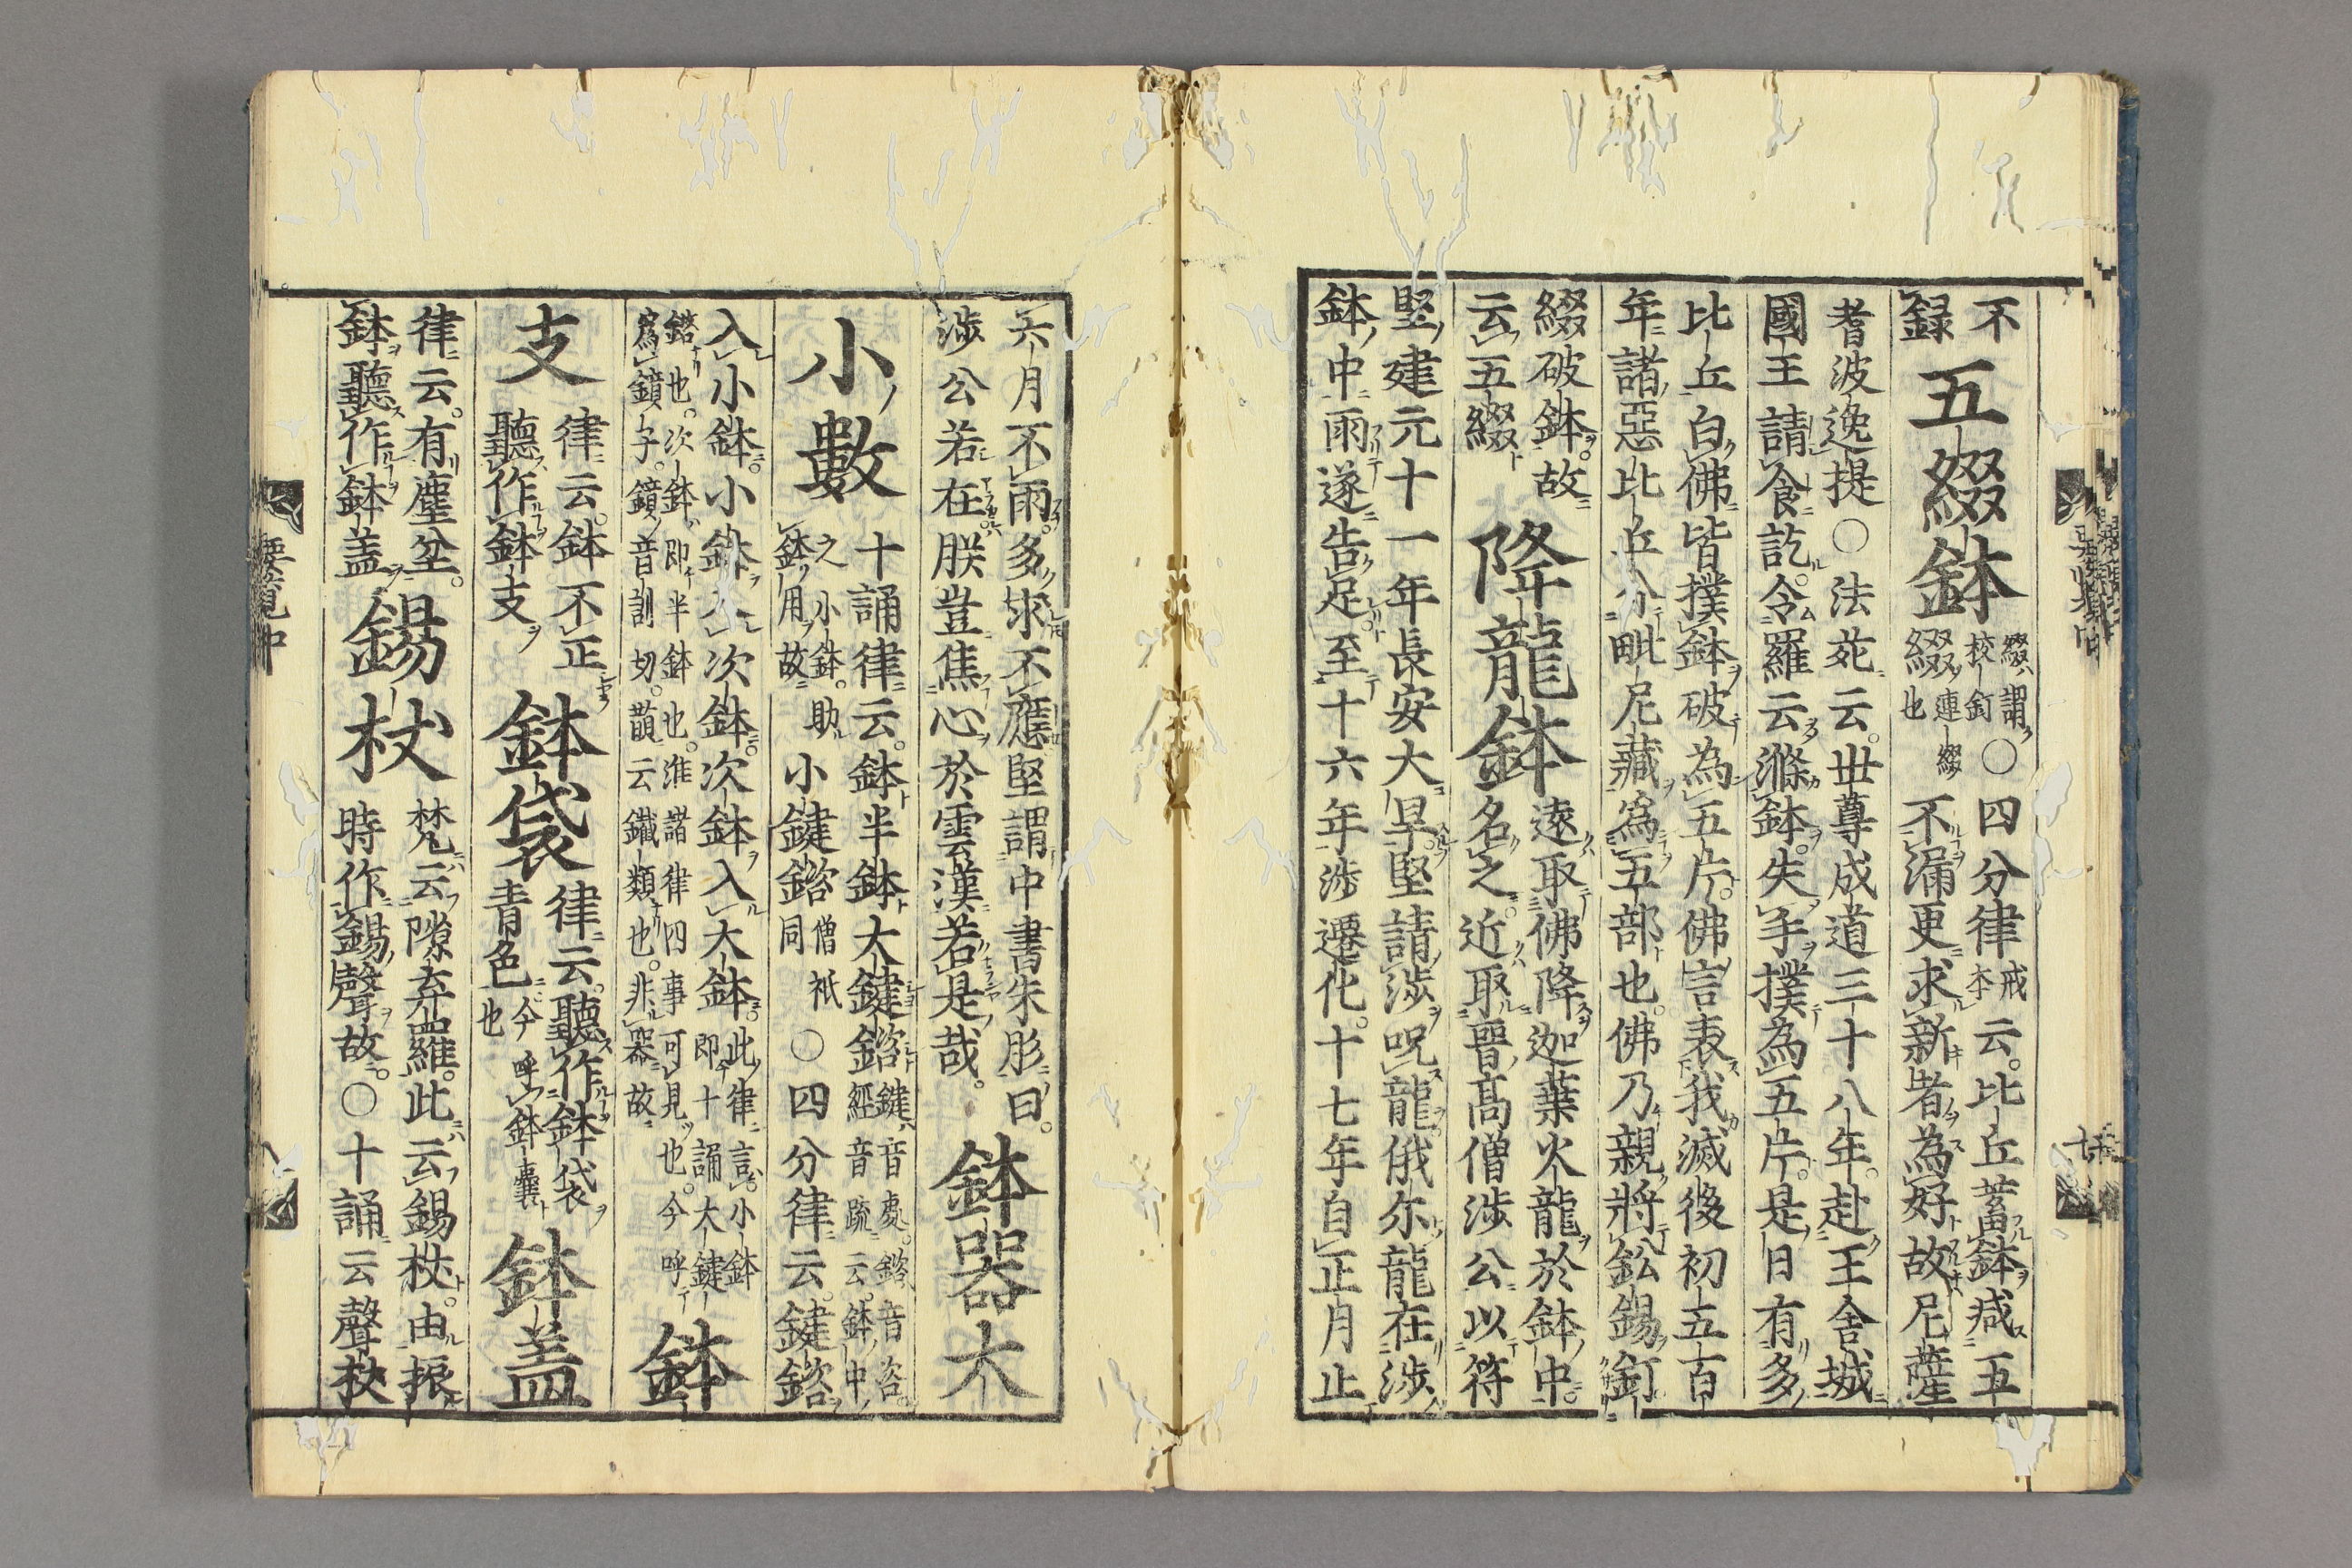 不
錄
五綴鉢
綴謂校釘○四分律戒本云比丘蓄鉢减五
綴連綴也不漏更求新者為好故尼薩
耆波逸提○法苑云世尊成道三十八年赴王舍城
國王請食訖令羅云滌鉢失手撲為五片是日有多
比丘白佛皆撲鉢破為五片佛言表我滅後初五百
年諸惡比丘分毗尼藏為五部也佛乃親將鈆錫釘
綴破鉢故
云五綴
降龍鉢
遠取佛降迦葉火龍於鉢中
名之近取晉高僧涉公以符
堅建元十一年長安大旱堅請涉呪龍俄尔龍在涉
鉢中雨遂告足至十六年涉遷化十七年自正月止
六月不雨多求不應堅謂中書朱肜曰
涉公若在朕豈焦心於雲漢若是哉
鉢器大
小數
十誦律云鉢半鉢大鍵鎔鍵音處鎔音咨
經音疏云鉢中
之小鉢助
鉢用故
小鍵鎔僧祇同○四分律云鍵鎔
入小鉢小鉢入次鉢次鉢入大鉢此律言小鉢
即十誦大鍵
鎔也次鉢即半鉢也淮諸律四事可見也今呼
為鐼子鐼音訓切韻云鐵類也非器故
鉢
支
律云鉢不正
聽作鉢支
鉢袋
律云聽作鉢袋
青色今呼山鉢囊
也
鉢盖
律云有塵坌
鉢聽作鉢盖
錫杖
梵云隙弃羅此云錫杖由振
時作錫聲故○十誦云聲杖
要覧中